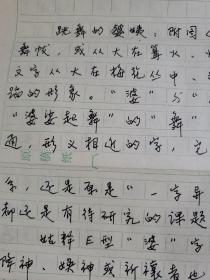 跳舞的
舞帔，或从大在篝火、
文字从大在梅花丛中、
蹈的形象。“婆”与“
“婆娑起舞”的“舞”
通，形义相近的字，
字，还是原是“一字异
都还是有待研究的课题
E型“婆”字
降神、娱神或祈禳者也